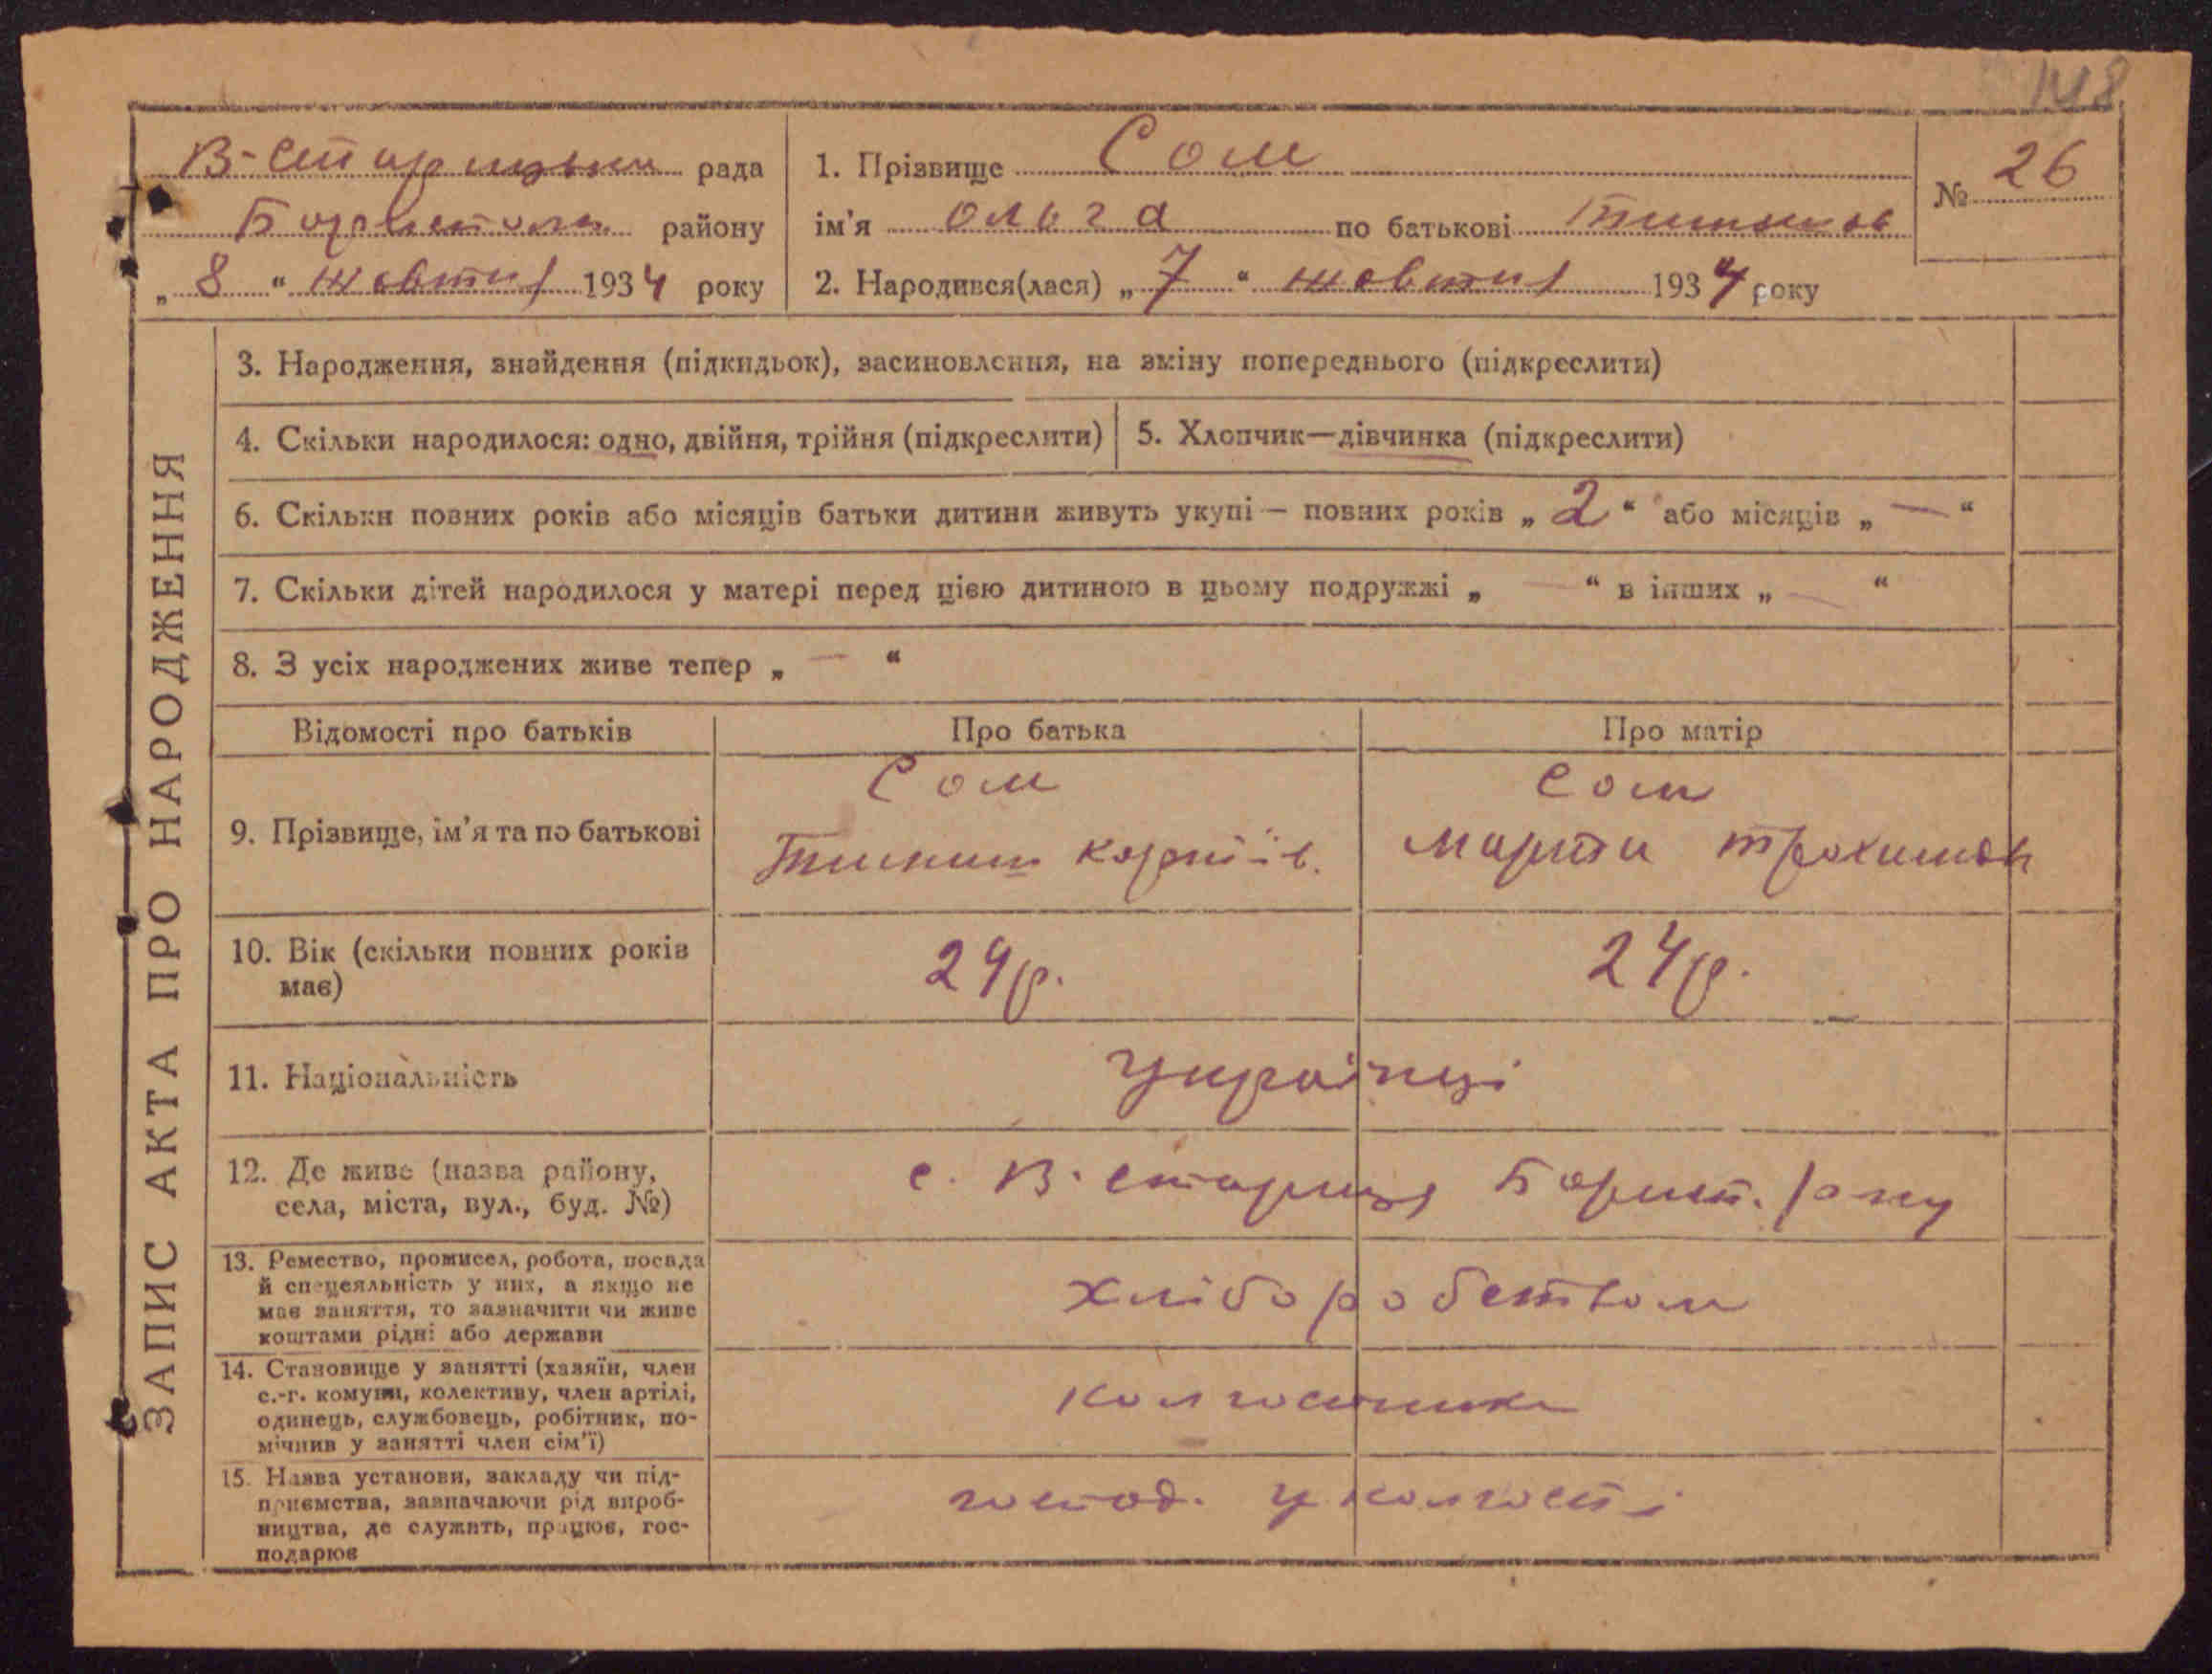 148
В-Старицька рада
Бориспольс. району
„ 8 “ жовтня 1934 року
1. Прізвище Сом
ім'я Ольга по батькові Тишков
2. Народився(лася) „ 7 “ жовтня 1934 року
№ 26
ЗАПИС АКТА ПРО НАРОДЖЕННЯ
3. Народження, знайдення (підкидьок), засиновлення, на зміну попереднього (підкреслити)
4. Скільки народилося: одно, двійня, трійня (підкреслити)
5. Хлопчик—дівчинка (підкреслити)
6. Скільки повних років або місяців батьки дитини живуть укупі — повних років „ 2 “ або місяців „ — “
7. Скільки дітей народилося у матері перед цією дитиною в цьому подружжі „ — “ в інших „ — “
8. З усіх народжених живе тепер „ — “
Відомості про батьків
Про батька
Про матір
9. Прізвище, ім'я та по батькові
Сом
Карпів.
Сом
Марта Трохимов
10. Вік (скільки повних років
має)
24р.
24р.
11. Національність
Українці
12. Де живе (назва району,
села, міста, вул., буд. №)
с. В. Стариця Борисп. р-ну
13. Ремество, промисел, робота, посада
й спецеяльність у них, а якщо не
має заняття, то зазначити чи живе
коштами рідні або держави
хліборобством
14. Становище у занятті (хазяїн, член
с.-г. комуни, колективу, член артілі,
одинець, службовець, робітник, по-
мічнив у занятті член сім'ї)
колгоспники
15. Назва установи, закладу чи під-
приємства, зазначаючи рід вироб-
ництва, де служить, працює, гос-
подарює
господ. у колгоспі